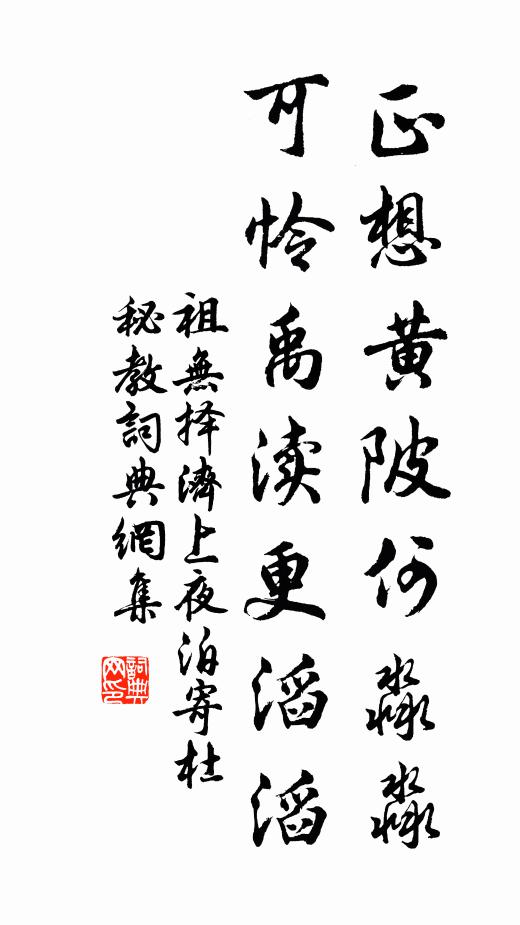 正想黄陂何淼淼
可怜禹渎更滔滔
祖無择濟上夜泊寄杜
秘教詞典網集
詞典网印